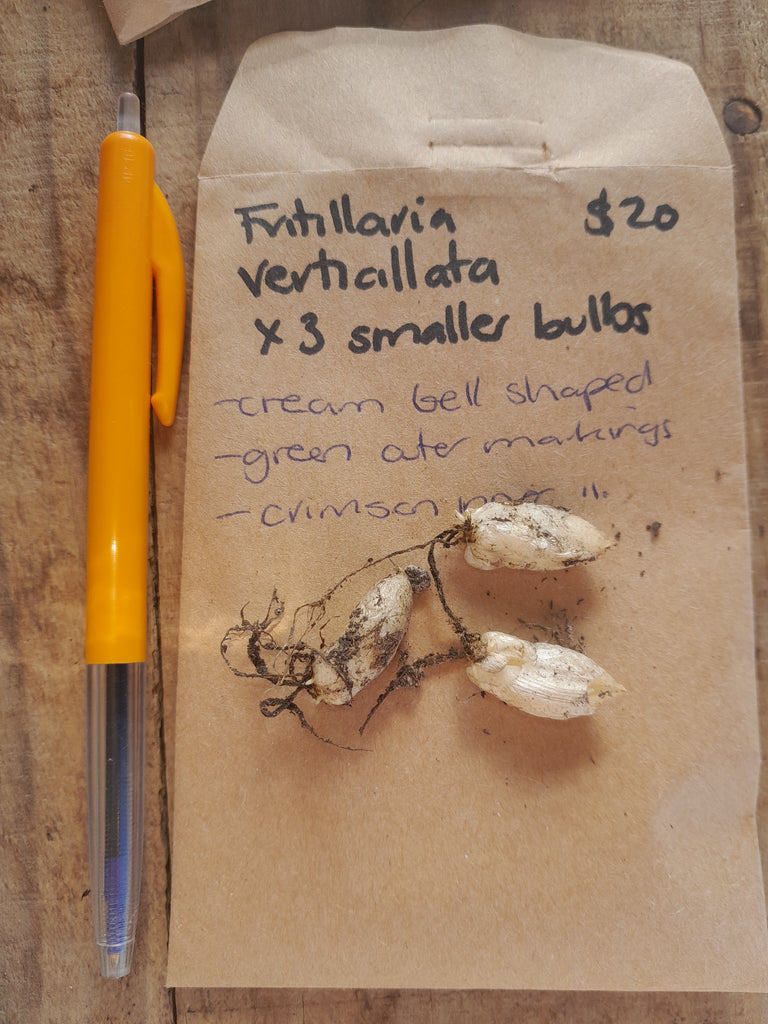 Fritillaria $20
verticillata
x 3 smaller bulbs
-cream bell shaped
-green outer markings
-crimson inner "